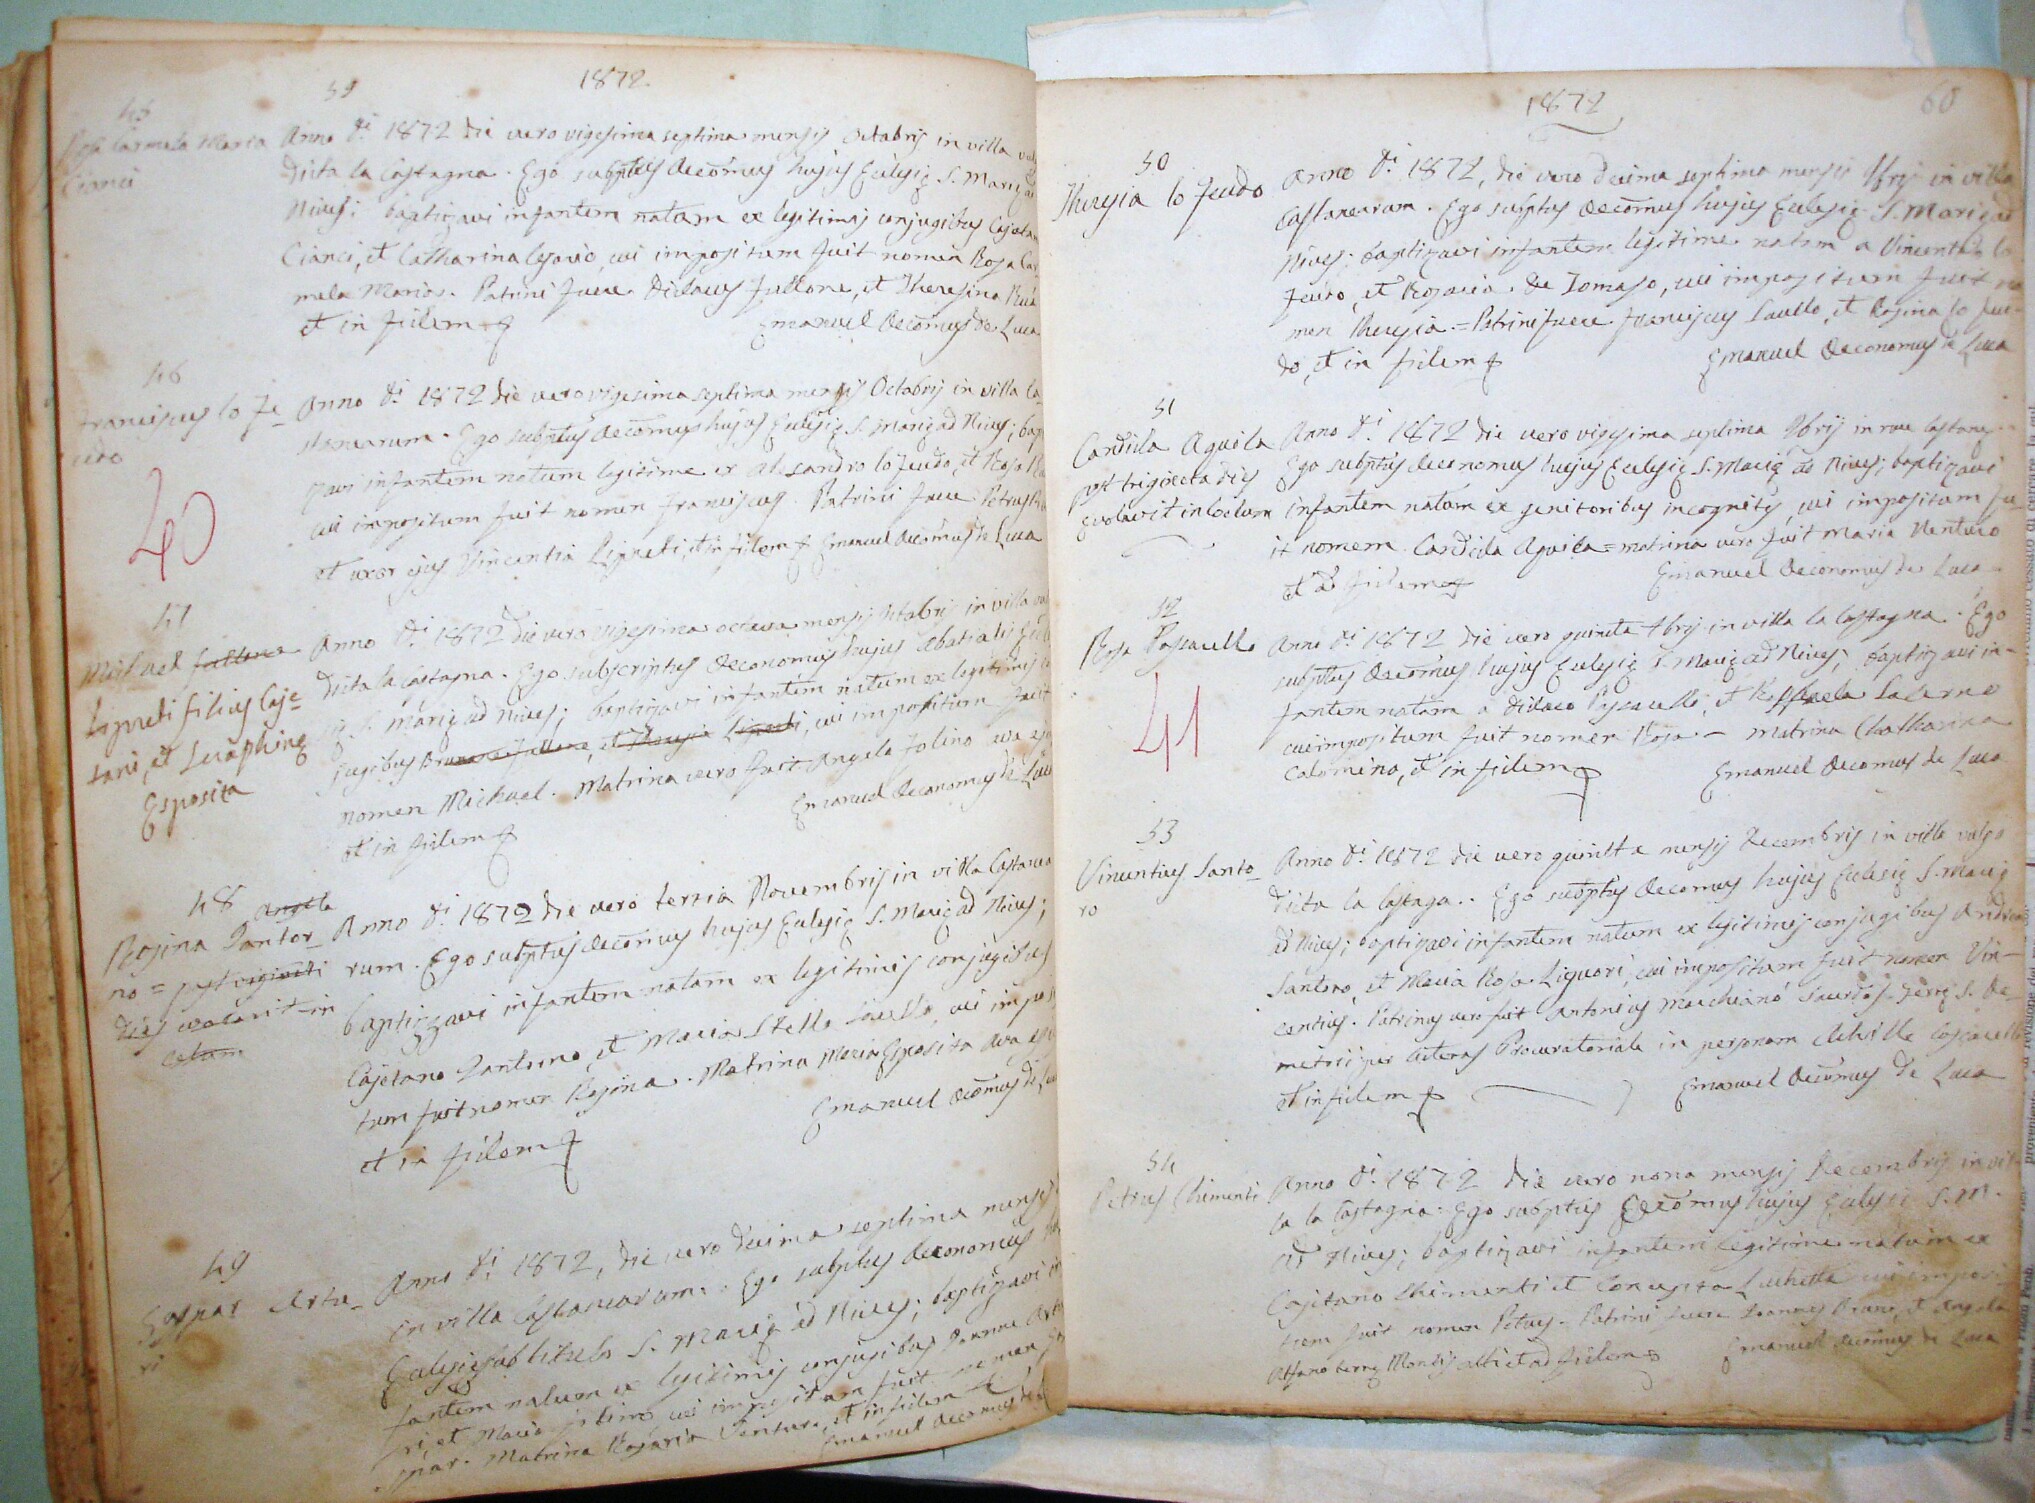 59
1872.
45
Rosa Carmela Maria
Cianci
Anno D.i 1872 die vero vigesima septima mensis Octobris in villa
dicta la Castagna. Ego subptus Oecomus hujus Eclesiȩ S. Mariȩ ad
Nives; baptizavi infantem natam ex legitimis conjugibus Cajetan
Cianci, et Catharina Cesario, cui impositum fuit nomen Rosa Car
mela Maria. Patrini fuere Didacus Fullone, et Theresina
et in fidem
Emanuel Oecomus de Luca
46
Franciscus lo Fe=
udo
40
Anno D.i 1872 die vero vigesima septima mensis Octobris in villa Ca
stanearum. Ego subptus Oecomus hujus Eclesiȩ S. Mariȩ ad Nives; bapti
zavi infantem natum legitime ex Alesandro lo Feudo, et Rosa
cui impositum fuit nomen Franciscus. Patrini fuere Petrus
et uxor ejus Vincentia Lipreti, et in fidem Emanuel Oecomus de Luca
47
Michael Fullone
Lipreti filius Caje=
tani, et Seraphinȩ
Esposita
Anno D.i 1872 die vero vigesima octava mensis Octobris in villa
dicta la Castagna. Ego subscriptus Oeconomus hujus Abatialis Ecle
siȩ S. Mariȩ ad Nives; baptizavi infantem natum ex legitimis con
jugibus Brunone Fullone, et Theresia Lipreti, cui impositum fuit
nomen Michael. Matrina vero fuit Angela Folino ava ejus
et in fidem
Emanuel Oeconomus de Luca
48 Angela
Rosina Santor=
no = post viginti
dies evolavit in
Celum
Anno D.i 1872 die vero tertia Novembris in villa Castanea
rum. Ego subptus Oecomus hujus Eclesiȩ S. Mariȩ ad Nives;
baptizzavi infantem natam ex legitimis conjugibus
Cajetano Santorno, et Maria Stella Saullo, cui imposi
tum fuit nomen Rosina. Matrina Maria Esposita ava ejus
et in fidem
Emanuel Oecomus de Luca
49
Gaspar Artu=
ri
Anno D.i 1872, die vero decima septima mensis
in villa Castanearum. Ego subptus Oeconomus
Eclesiȩ sub titulo S. Mariȩ ad Nives; baptizavi in
fantem natum ex legitimis conjugibus Joanne Artu
ri, et Maria Folino cui impositum fuit nomen Ga
spar. Matrina Rosaria Ventura, et in fidem
Emanuel Oecomus de
1872
60
50
Theresia lo Feudo
Anno D.i 1872, die vero decima septima mensis 9bris in villa
Castanearum. Ego subptus Oecomus hujus Eclesiȩ S. Mariȩ ad
Nives; baptizavi infantem legitime natam a Vincentio lo
Feudo, et Rosaria de Tomaso, cui impositum fuit no
men Theresia. = Patrini fuere Franciscus Saullo, et Rosina lo Feu=
do, et in fidem
Emanuel Oeconomus de Luca
51
Candida Aquila
post triginta dies
evolavit in Coelum
Anno D.i 1872 die vero vigesima septima 9bris in rure Castanea
Ego subptus Oeconomus hujus Eclesiȩ S. Mariȩ ad Nives; baptizavi
infantem natam ex genitoribus incognitis, cui impositum fu=
it nomem Candida Aquila = matrina vero fuit Maria Venturo
et ad fidem
Emanuel Oeconomus de Luca
52
Rosa Pascuello
41
Anno D.i 1872 die vero quinta Xbris in villa la Castagna. Ego
subptus Oecomus hujus Eclesiȩ S. Mariȩ ad Nives; baptizavi in=
fantem natam a Didaco Pascuello, et Raffaela Salerno
cui impositum fuit nomen Rosa — matrina Chatharina
Colomino, et in fidem
Emanuel Oecomus de Luca
53
Vincentius Santo=
ro
Anno D.i 1872 die vero quinta mensis Decembris in villa vulgo
dicta la Castagna. Ego subptus Oecomus hujus Eclesiȩ S. Mariȩ
ad Nives; baptizavi infantem natum ex legitimis conjugibus Andrea
Santoro, et Maria Rosa Liguori, cui impositum fuit nomen Vin=
centius. Patrinus vero fuit Antonius Marchianó Saurdos Terrȩ S. De=
metrii per literas Procuratoriale in personam Achille Coscarello
et in fidem
Emanuel Oecomus de Luca
54
Petrus Chimenti
Anno D.i 1872 die vero nona mensis Decembris in vil=
la la Castagna. Ego subptus Oecomus hujus Eclesiȩ S. M.
ad Nives; baptizavi infantem legitime natum ex
Cajetano Chimenti et Concepta Luchetta cui imposi=
tum fuit nomen Petrus. Patrini fuere Joannes Bruno, et Angela
Alfano terrȩ Montis alti et ad fidem
Emanuel Oecomus de Luca